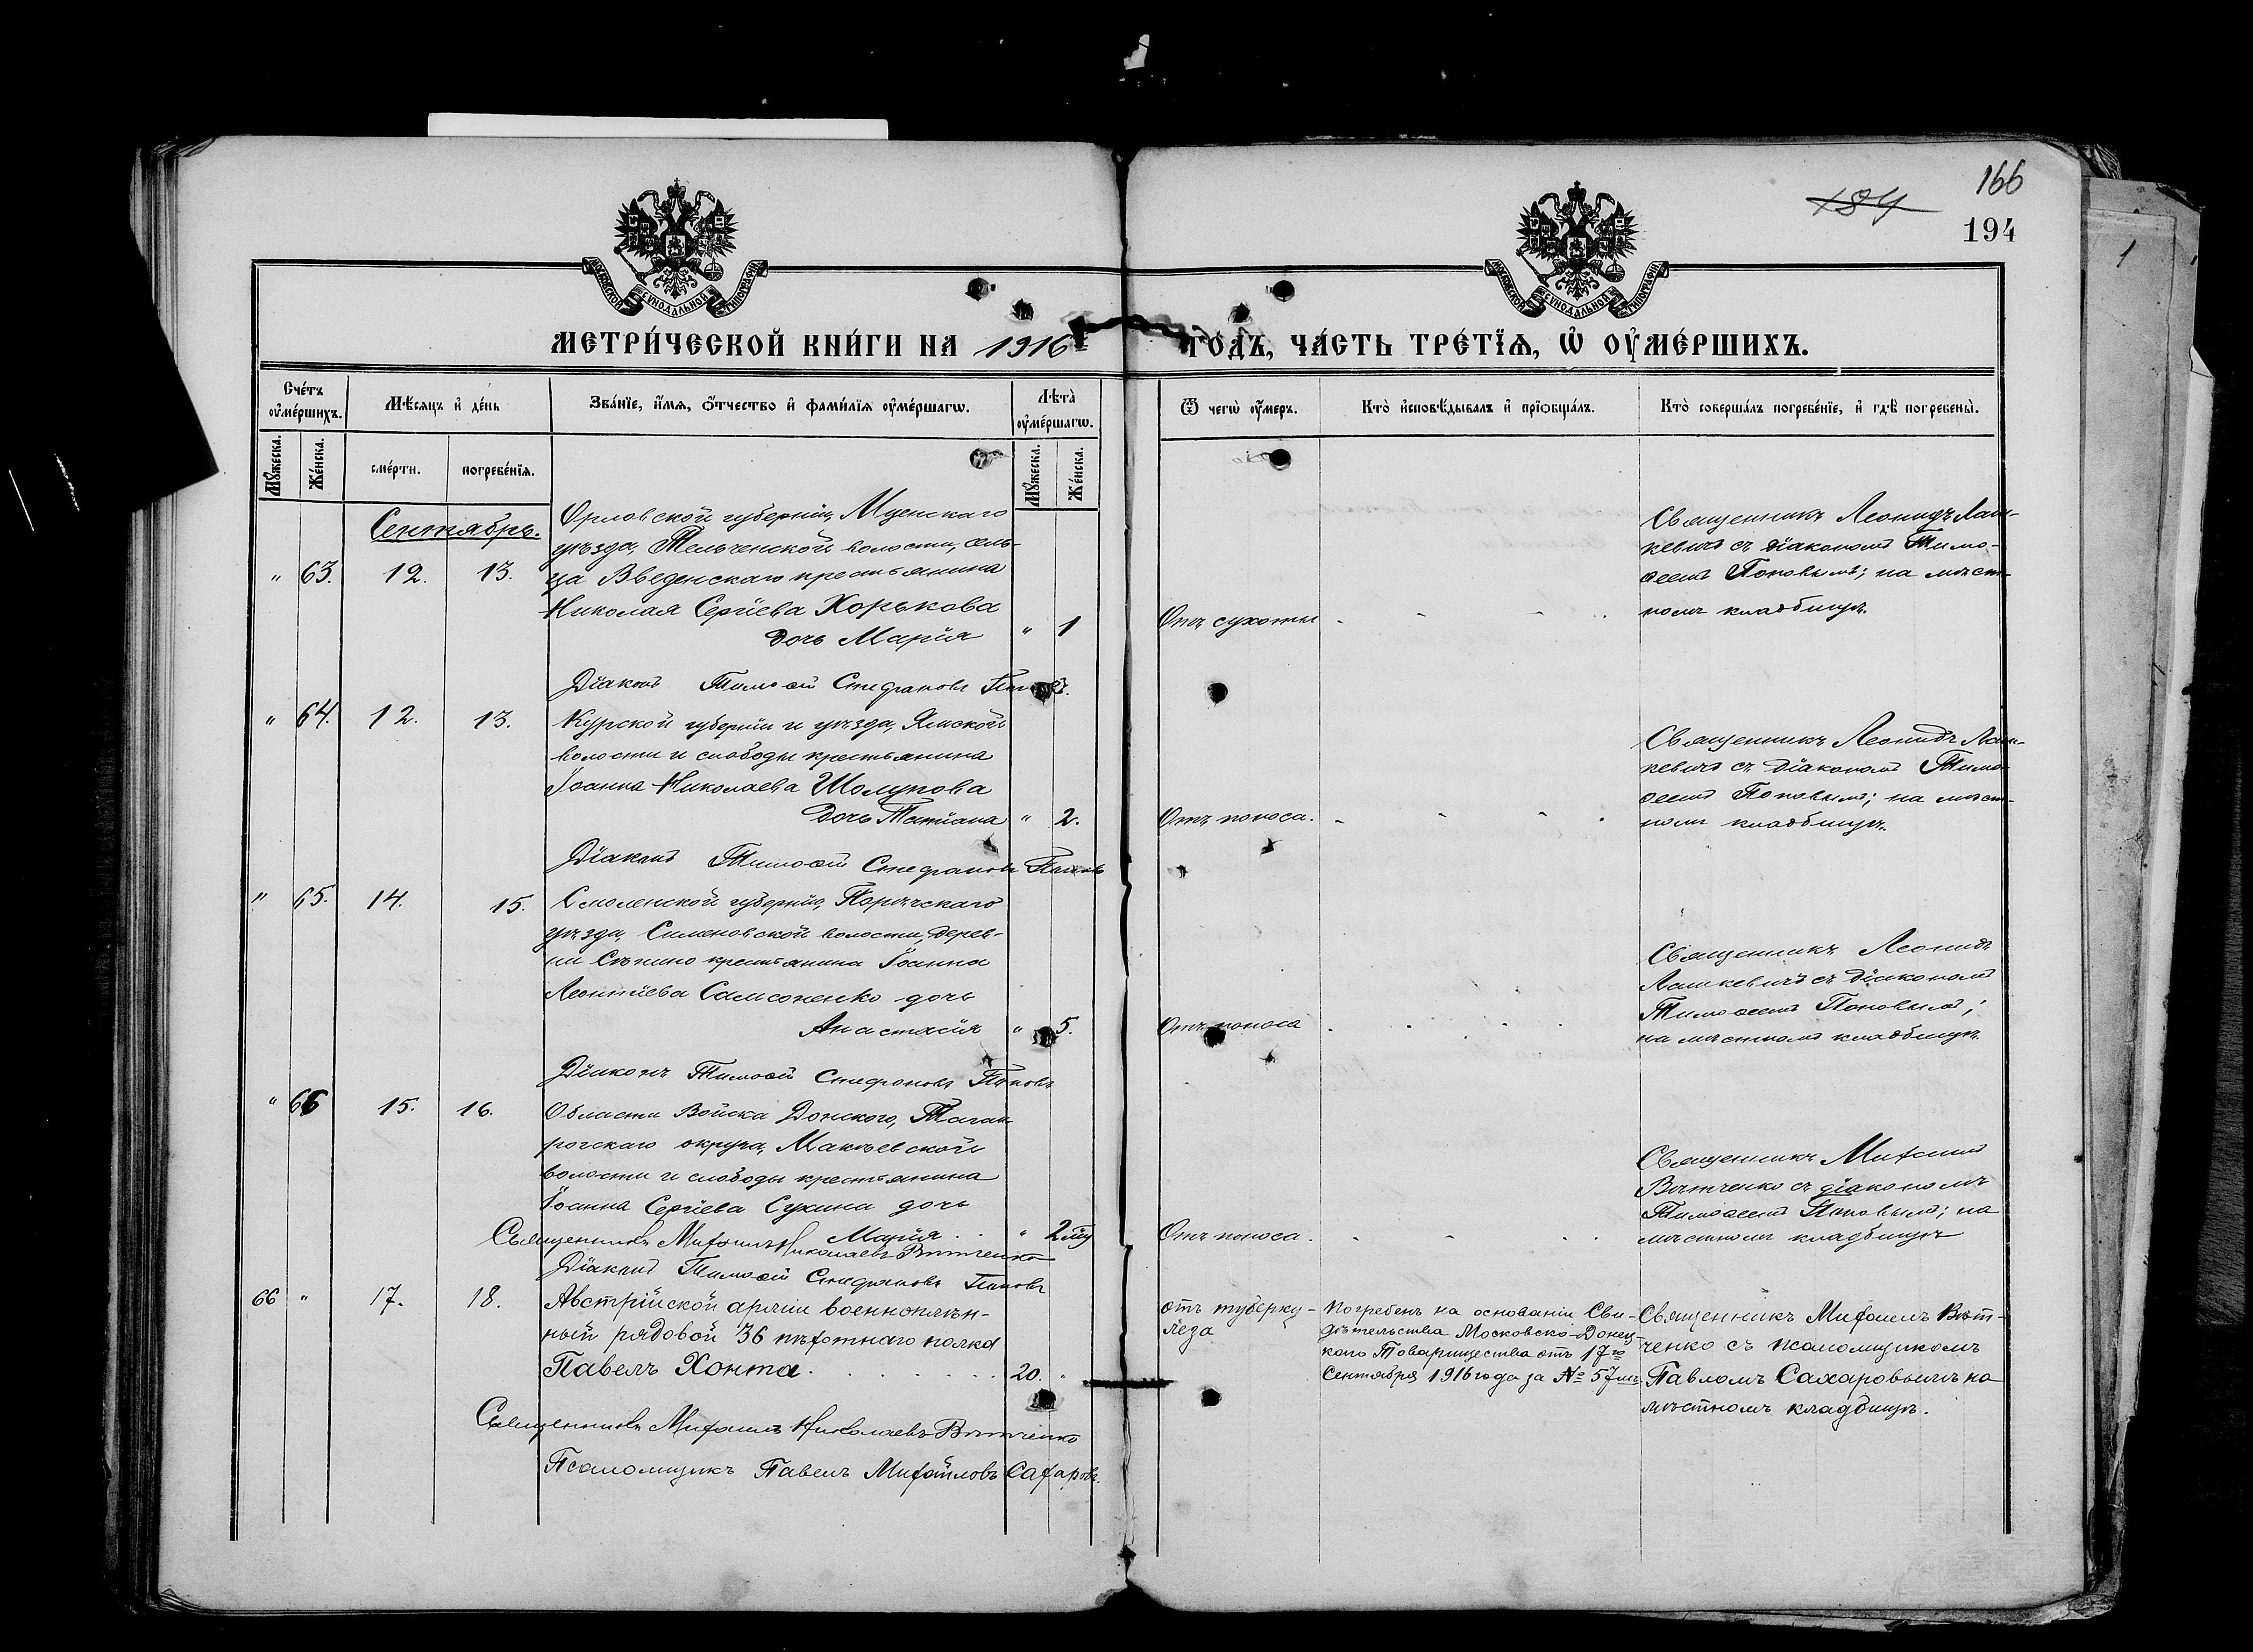 166
184
194
1
МОСКОВСКОЙ СѴНОДАЛЬНОЙ ТИПОГРАФІИ
МОСКОВСКОЙ СѴНОДАЛЬНОЙ ТИПОГРАФІИ
МЕТРИ́ЧЕСКОЙ КНИ́ГИ НА 1916 ГОДЪ, ЧА́СТЬ ТРЕ́ТЇѦ, Ѡ҆ ОУ҆МЕ́РШИХЪ.
Сче́тъ оу҆ме́ршихъ.
Мѣ́сяцъ и҆ де́нь
Зва́нїе, и҆́мя, ѻ҆́тчество и҆ фами́лїя оу҆ме́ршагѡ.
Лѣ́та̀ оу҆ме́ршагѡ.
Ѿ чегѡ̀ оу҆́меръ.
Кто̀ и҆сповѣ́дывалъ и҆ прїѡбща́лъ.
Кто̀ соверша́лъ погребе́нїе, и҆ гдѣ̀ погребены̀.
Му́жеска.
Же́нска.
сме́рти.
погребе́нїя.
Му́жеска.
Же́нска.
Сентябрь.
" 63. 12. 13.
Орловской губерніи, Мценскаго
уѣзда, Тельченской волости, сель-
ца Введенскаго крестьянина
Николая Сергіева Хорькова
дочь Марія " 1
Отъ сухотки
Священникъ Леонидъ Лаш-
кевичъ съ діакономъ Тимо-
ѳеемъ Поповымъ; на мѣст-
номъ кладбищѣ.
Діаконъ Тимоѳей Стефановъ Поповъ.
" 64. 12. 13.
Курской губерніи и уѣзда, Ямской
волости и слободы крестьянина
Іоанна Николаева Шолупова
дочь Татіана " 2.
Отъ поноса.
Священникъ Леонидъ Лаш-
кевичъ съ діакономъ Тимо-
ѳеемъ Поповымъ; на мѣст-
номъ кладбищѣ.
Діаконъ Тимоѳей Стефановъ Поповъ
" 65. 14. 15.
Смоленской губерніи, Порѣчскаго
уѣзда, Симоновской волости, дерев-
ни крестьянина Іоанна
Леонтіева Самсоненко дочь
Анастасія " 5.
Отъ поноса
Священникъ Леонидъ
Лашкевичъ съ діакономъ
Тимоѳеемъ Поповымъ;
на мѣстномъ кладбищѣ.
Діаконъ Тимоѳей Стефановъ Поповъ
" 66 15. 16.
Области Войска Донского, Таган-
рогскаго округа, Макѣевской
волости и слободы крестьянина
Іоанна Сергіева Сукина дочь
Марія " 2
Отъ поноса.
Священникъ Михаилъ
Вѣтченко съ діакономъ
Тимоѳеемъ Поповымъ; на
мѣстномъ кладбищѣ
Священникъ Михаилъ Николаевъ Вѣтченко
Діаконъ Тимоѳей Стефановъ Поповъ
66 " 17. 18.
Австрійской арміи военноплѣн-
ный рядовой 36 пѣхотнаго полка
Павелъ Хонта. 20. "
отъ туберку-
леза
Погребенъ на основаніи Сви-
дѣтельства Московско-Донец-
каго Товарищества отъ 17го
Сентября 1916 года за № 57мъ.
Священникъ Михаилъ Вѣт-
ченко съ псаломщикомъ
Павломъ Сахаровымъ на
мѣстномъ кладбищѣ.
Священникъ Михаилъ Николаевъ Вѣтченко
Псаломщикъ Павелъ Михайловъ Сахаровъ.